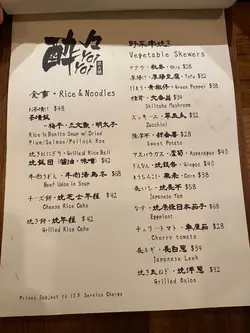 醉々
YOI
YOI
食事・Rice & Noodles
お茶漬け $48
茶漬飯
-梅干・三文魚・明太子
Rice in Bonito Soup w/ Dried
Plum/Salmon/Pollock Roe
焼きおにぎり・Grilled Rice Ball
焼飯團 (醬油・味噌) $42
牛肉うどん・牛肉烏冬 $68
Beef Udon in Soup
チーズ餅・芝士年糕 $42
Cheese Rice Cake
焼き餅・焼年糕 $42
Grilled Rice Cake
Prices Subject to 10% Service Charge
野菜串燒
Vegetable Skewers
オクラ・秋葵・Okra $28
厚揚げ・厚揚豆腐・Tofu $32
青椒仔・Green Pepper $38
椎茸・冬菇 $34
Shiitake Mushroom
ズッキーニ・翠玉瓜 $32
Zucchini
薩摩芋・甜番薯 $32
Sweet Potato
アスパラガス・露筍・Asparagus $40
ぎんなん・銀杏・Gingko $40
とうもろこし・粟米・Corn $38
長いも・$42
Japanese Yam
なす・焼原條日本茄子 $68
Eggplant
チェリートマト・車厘茄 $28
Cherry tomato
長ネギ・長白蔥 $34
Japanese Leek
焼き玉ねぎ・焼洋蔥 $32
Grilled Onion